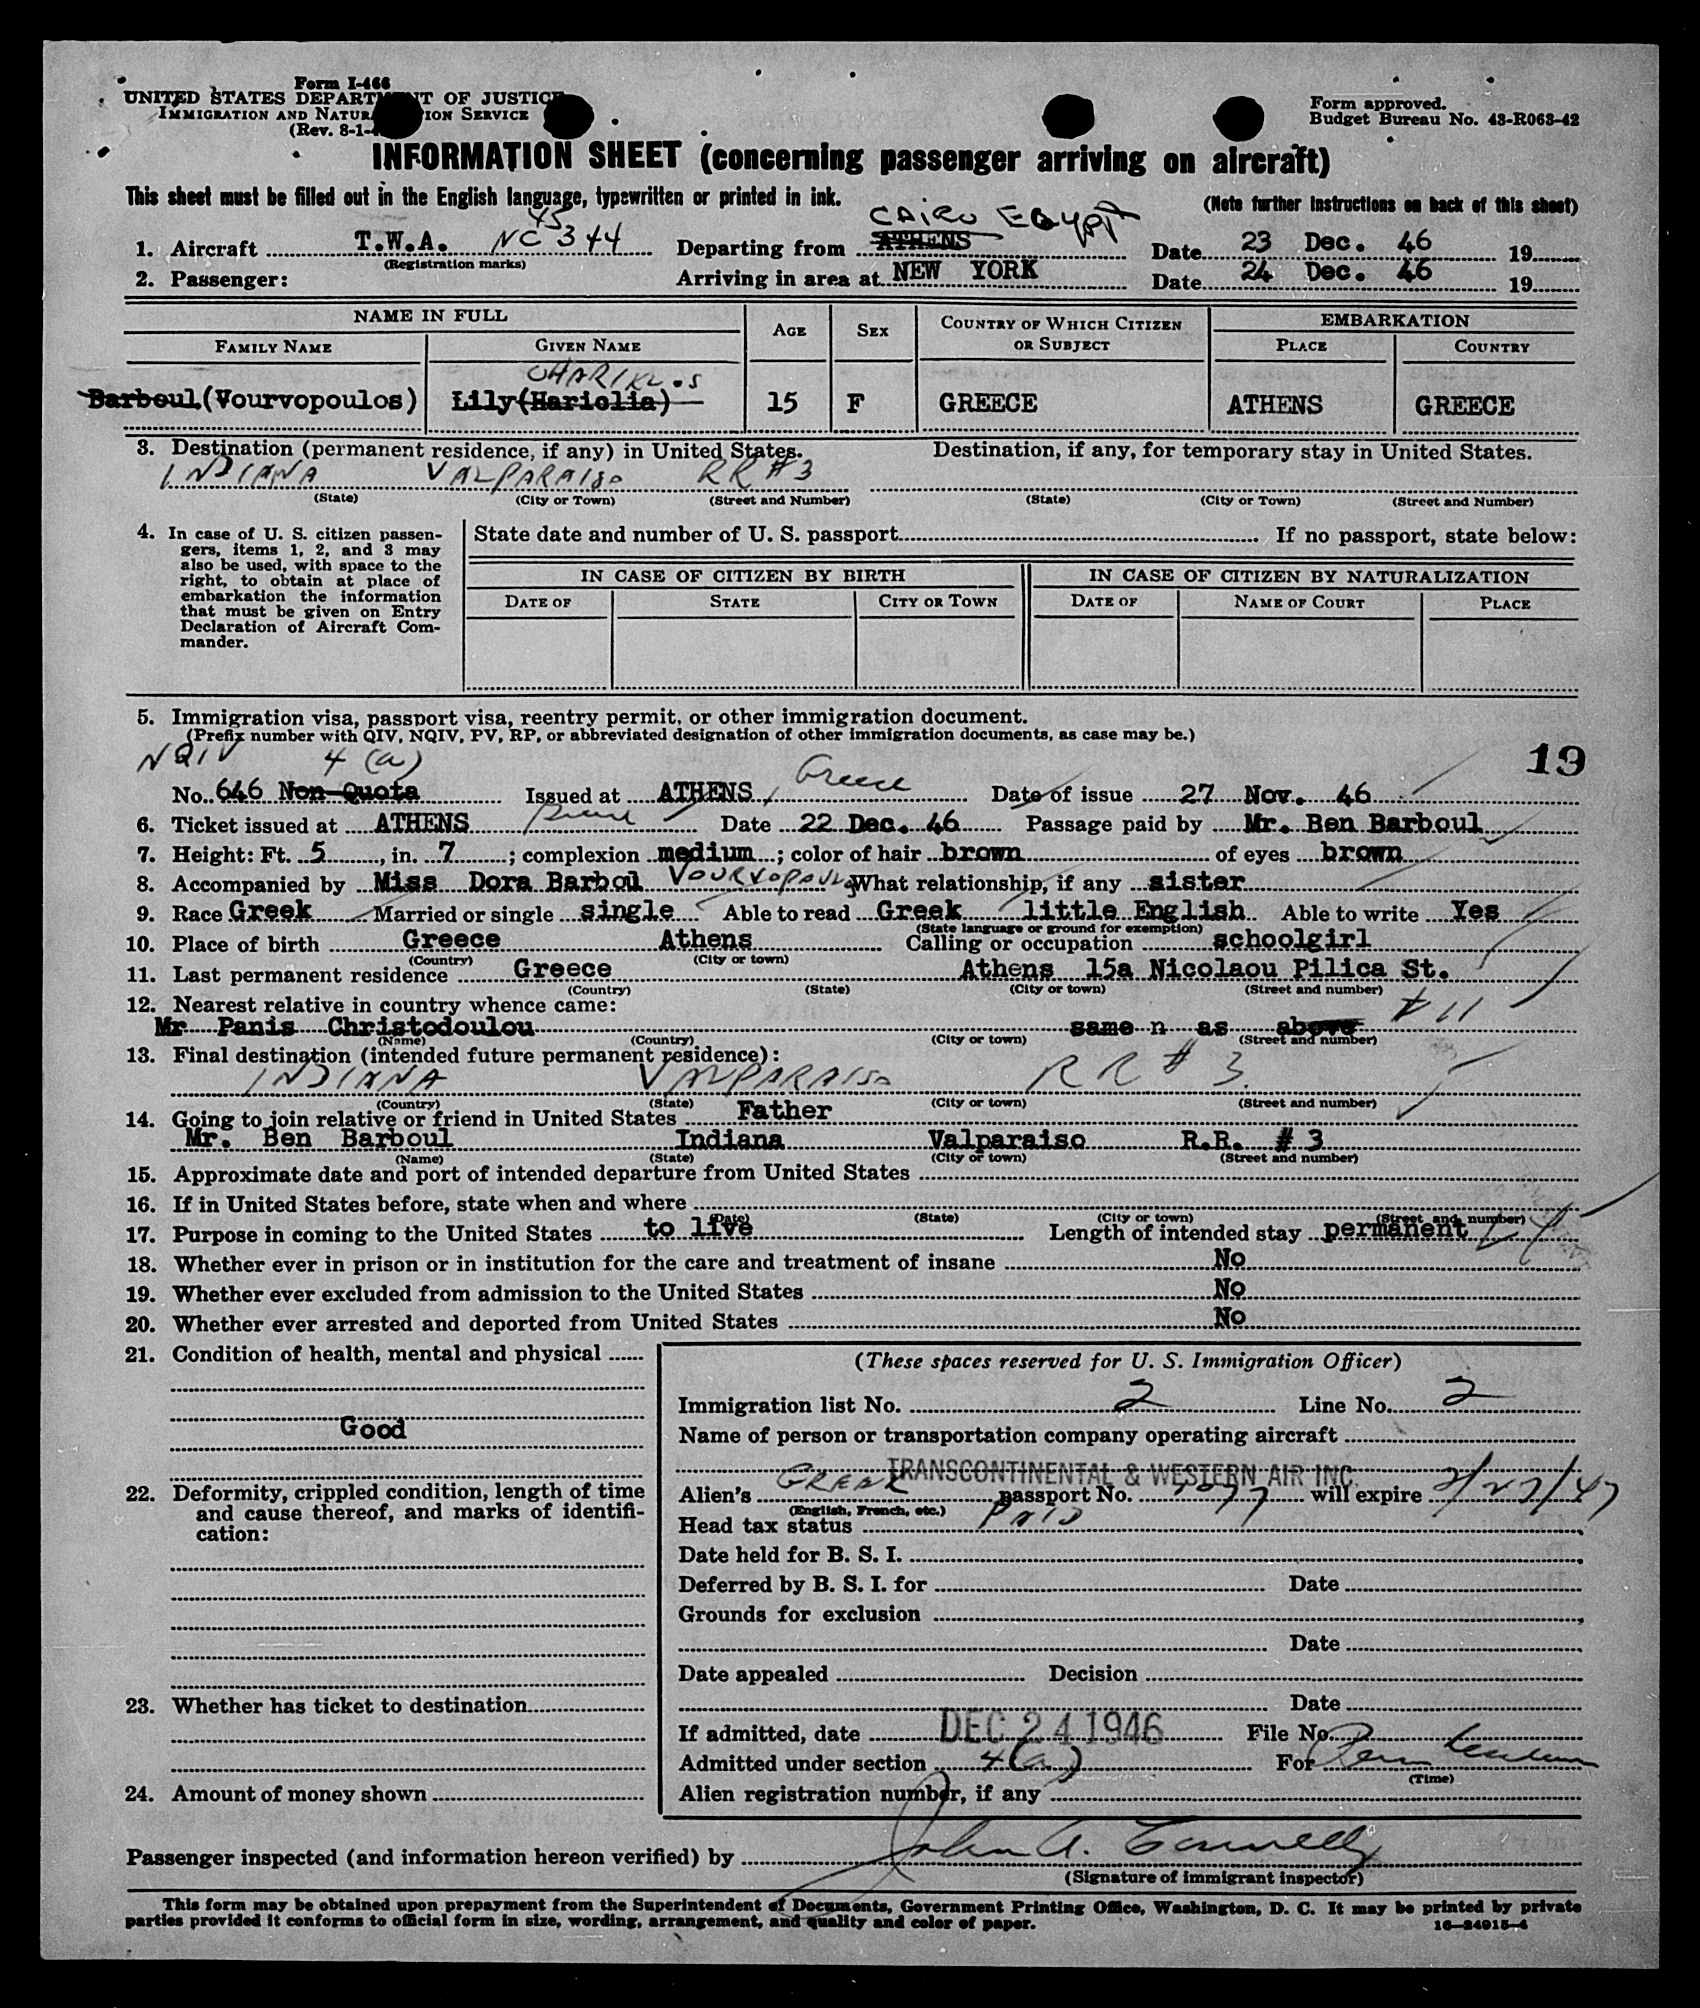 Form I-466
UNITED STATES DEPARTMENT OF JUSTICE
IMMIGRATION AND NATURALIZATION SERVICE
(Rev. 8-1-
Form approved.
Budget Bureau No. 43-R063-42
INFORMATION SHEET (concerning passenger arriving on aircraft)
This sheet must be filled out in the English language, typewritten or printed in ink.
(Note further instructions on back of this sheet)
1. Aircraft T.W.A. NC 45344 Departing from ATHENS CAIRO EGYPT Date 23 Dec. 46 19
(Registration marks)
2. Passenger: Arriving in area at NEW YORK Date 24 Dec. 46 19
NAME IN FULL AGE SEX COUNTRY OF WHICH CITIZEN OR SUBJECT EMBARKATION
FAMILY NAME GIVEN NAME PLACE COUNTRY
Barboul (Vourvopoulos) Lily (Hariolia) 15 F GREECE ATHENS GREECE
3. Destination (permanent residence, if any) in United States. Destination, if any, for temporary stay in United States.
INDIANA VALPARAISO RR #3
(State) (City or Town) (Street and Number) (State) (City or Town) (Street and Number)
4. In case of U. S. citizen passengers, items 1, 2, and 3 may also be used, with space to the right, to obtain at place of embarkation the information that must be given on Entry Declaration of Aircraft Commander.
State date and number of U. S. passport If no passport, state below:
IN CASE OF CITIZEN BY BIRTH IN CASE OF CITIZEN BY NATURALIZATION
DATE OF STATE CITY OR TOWN DATE OF NAME OF COURT PLACE
5. Immigration visa, passport visa, reentry permit, or other immigration document.
(Prefix number with QIV, NQIV, PV, RP, or abbreviated designation of other immigration documents, as case may be.)
19
NQIV 4 (a)
No. 646 Non-Quota Issued at ATHENS, Greece Date of issue 27 Nov. 46
6. Ticket issued at ATHENS Date 22 Dec. 46 Passage paid by Mr. Ben Barboul
7. Height: Ft. 5, in. 7; complexion medium; color of hair brown of eyes brown
8. Accompanied by Miss Dora Barbol VOURVOPOULOS What relationship, if any sister
9. Race Greek Married or single single Able to read Greek little English Able to write Yes
(State language or ground for exemption)
10. Place of birth Greece Athens Calling or occupation schoolgirl
(Country) (City or town)
11. Last permanent residence Greece Athens 15a Nicolaou Pilica St.
(Country) (State) (City or town) (Street and number)
12. Nearest relative in country whence came:
Mr Panis Christodoulou same n as above #11
(Name) (Country) (City or town) (Street and number)
13. Final destination (intended future permanent residence):
INDIANA VALPARAISO RR #3
(Country) (State) (City or town) (Street and number)
14. Going to join relative or friend in United States Father
Mr. Ben Barboul Indiana Valparaiso R.R. # 3
(Name) (State) (City or town) (Street and number)
15. Approximate date and port of intended departure from United States
16. If in United States before, state when and where
(Date) (State) (City or town) (Street and number)
17. Purpose in coming to the United States to live Length of intended stay permanent
18. Whether ever in prison or in institution for the care and treatment of insane No
19. Whether ever excluded from admission to the United States No
20. Whether ever arrested and deported from United States No
21. Condition of health, mental and physical
Good
22. Deformity, crippled condition, length of time and cause thereof, and marks of identification:
23. Whether has ticket to destination
24. Amount of money shown
(These spaces reserved for U. S. Immigration Officer)
Immigration list No. 2 Line No. 2
Name of person or transportation company operating aircraft
TRANSCONTINENTAL & WESTERN AIR INC.
Alien's GREEK passport No. will expire 2/27/47
(English, French, etc.)
Head tax status PAID
Date held for B. S. I.
Deferred by B. S. I. for Date
Grounds for exclusion
Date
Date appealed Decision
Date
If admitted, date DEC 24 1946 File No.
Admitted under section 4(a) For
(Time)
Alien registration number, if any
Passenger inspected (and information hereon verified) by John A. Connelly
(Signature of immigrant inspector)
This form may be obtained upon prepayment from the Superintendent of Documents, Government Printing Office, Washington, D. C. It may be printed by private
parties provided it conforms to official form in size, wording, arrangement, and quality and color of paper.
16-24915-4